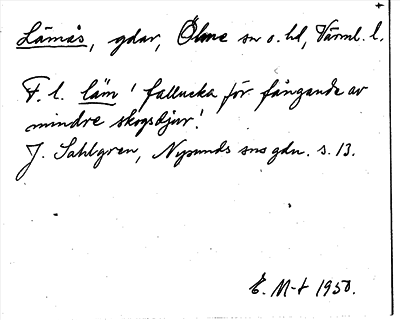 Lämås, gdar, Ölme sn o. hd, Värml. l.
F. l. läm ' fallucka för fångande av
mindre skogsdjur'.
J. Sahlgren, Nysunds sns gdn. s. 13.
E. M-t 1950.